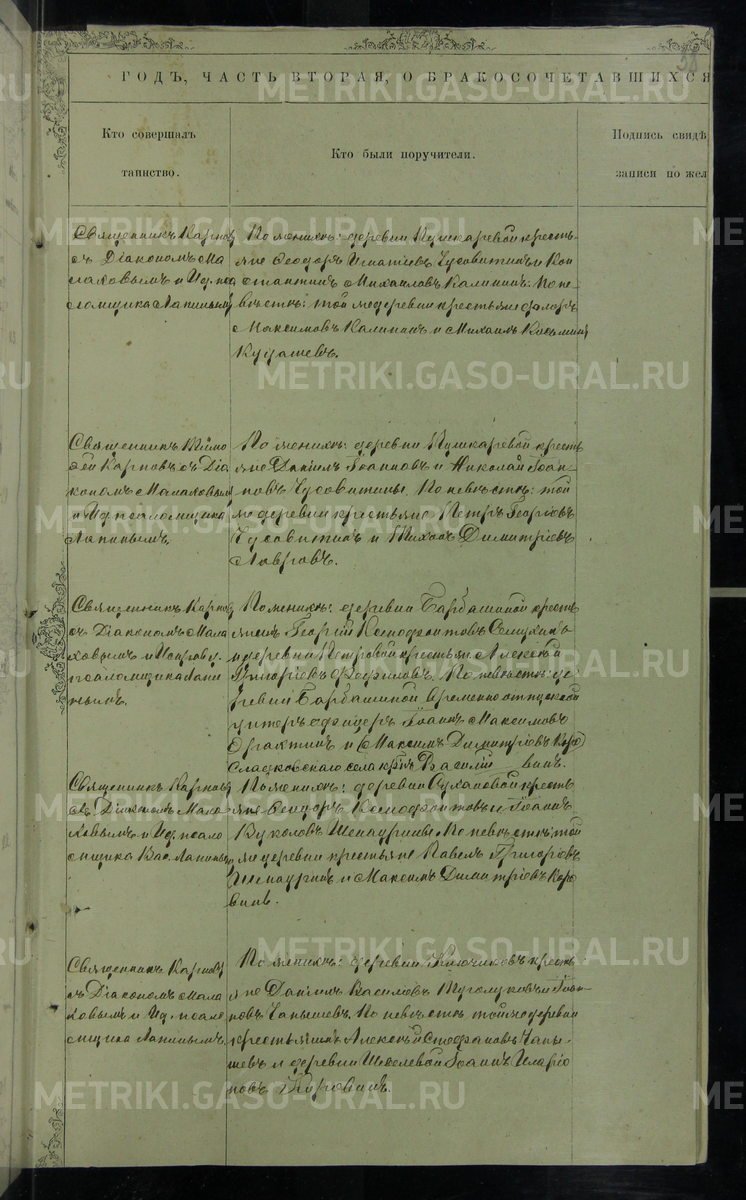 38
ГОДЪ, ЧАСТЬ ВТОРАЯ, О БРАКОСОЧЕТАВШИХСЯ
Кто совершалъ
таинство.
Кто были поручители.
Подпись свидѣ
записи по жел
Священникъ Карповъ
съ Діакономъ Ма
лаховымъ и Ид. пса
ломщика Лапинымъ
По женихѣ: деревни Пушкаревой кресть-
яне Ѳеодоръ Игнатіевъ Чусовитинъ и Кон
стантинъ Михаиловъ Калининъ. По не-
вѣстѣ: той же деревни крестьяне
Максимовъ Калининъ и Михаилъ Козьминъ
Кудашевъ.
Священникъ Тимо
ѳей Карповъ съ Діа
кономъ Малаховымъ
и Ид. псаломщика
Лапинымъ.
По женихѣ: деревни Пушкаревой кресть
яне Даніилъ Іоанновъ и Николай Іоан-
новъ Чусовитины. По невѣстѣ: той
же деревни крестьяне Петръ Георгіевъ
Чусовитинъ и Тихонъ Димитріевъ
Лавровъ.
Священникъ Карповъ
съ Діакономъ Мала
ховымъ и Исправ. д.
псаломщика Лапи
нымъ.
По женихѣ: деревни Барбашиной кресть
янинъ Георгій Ксенофонтовъ
и деревни Петровой крестьян. Алексѣй
Григоріевъ Ѳефиловъ. По невѣстѣ: де
ревни Барбашиной временно отпускной
унтеръ офицеръ Іоаннъ Максимовъ
и Максимъ Димитріевъ Коро
Сладковскаго села кр-нъ Василій винъ.
Священникъ Карповъ
съ Діакономъ Мала
ховымъ и Ид. псало
мщика Вас. Лапинымъ
По женихѣ: деревни Сухановой кресть
яне Ѳеодоръ Ксенофонтовъ и Іоаннъ
Вуколовъ Шепаурины. По невѣстѣ: той
же деревни крестьяне Павелъ Григоріевъ
Шепауринъ и Максимъ Димитріевъ Коро
винъ.
Священникъ Карповъ
съ Діакономъ Мала
ховымъ и Ид. псало
мщика Лапинымъ.
По женихѣ: деревни Ключиковъ кресть
яне Даніилъ Василіевъ и Іоан-
новъ Чапышевъ. По невѣстѣ той же деревни
крестьянинъ Алексѣй Стефановъ Чапы-
шевъ и деревни Шевелевой Іоаннъ Иларіо
новъ
METRIKI.GASO-URAL.RU